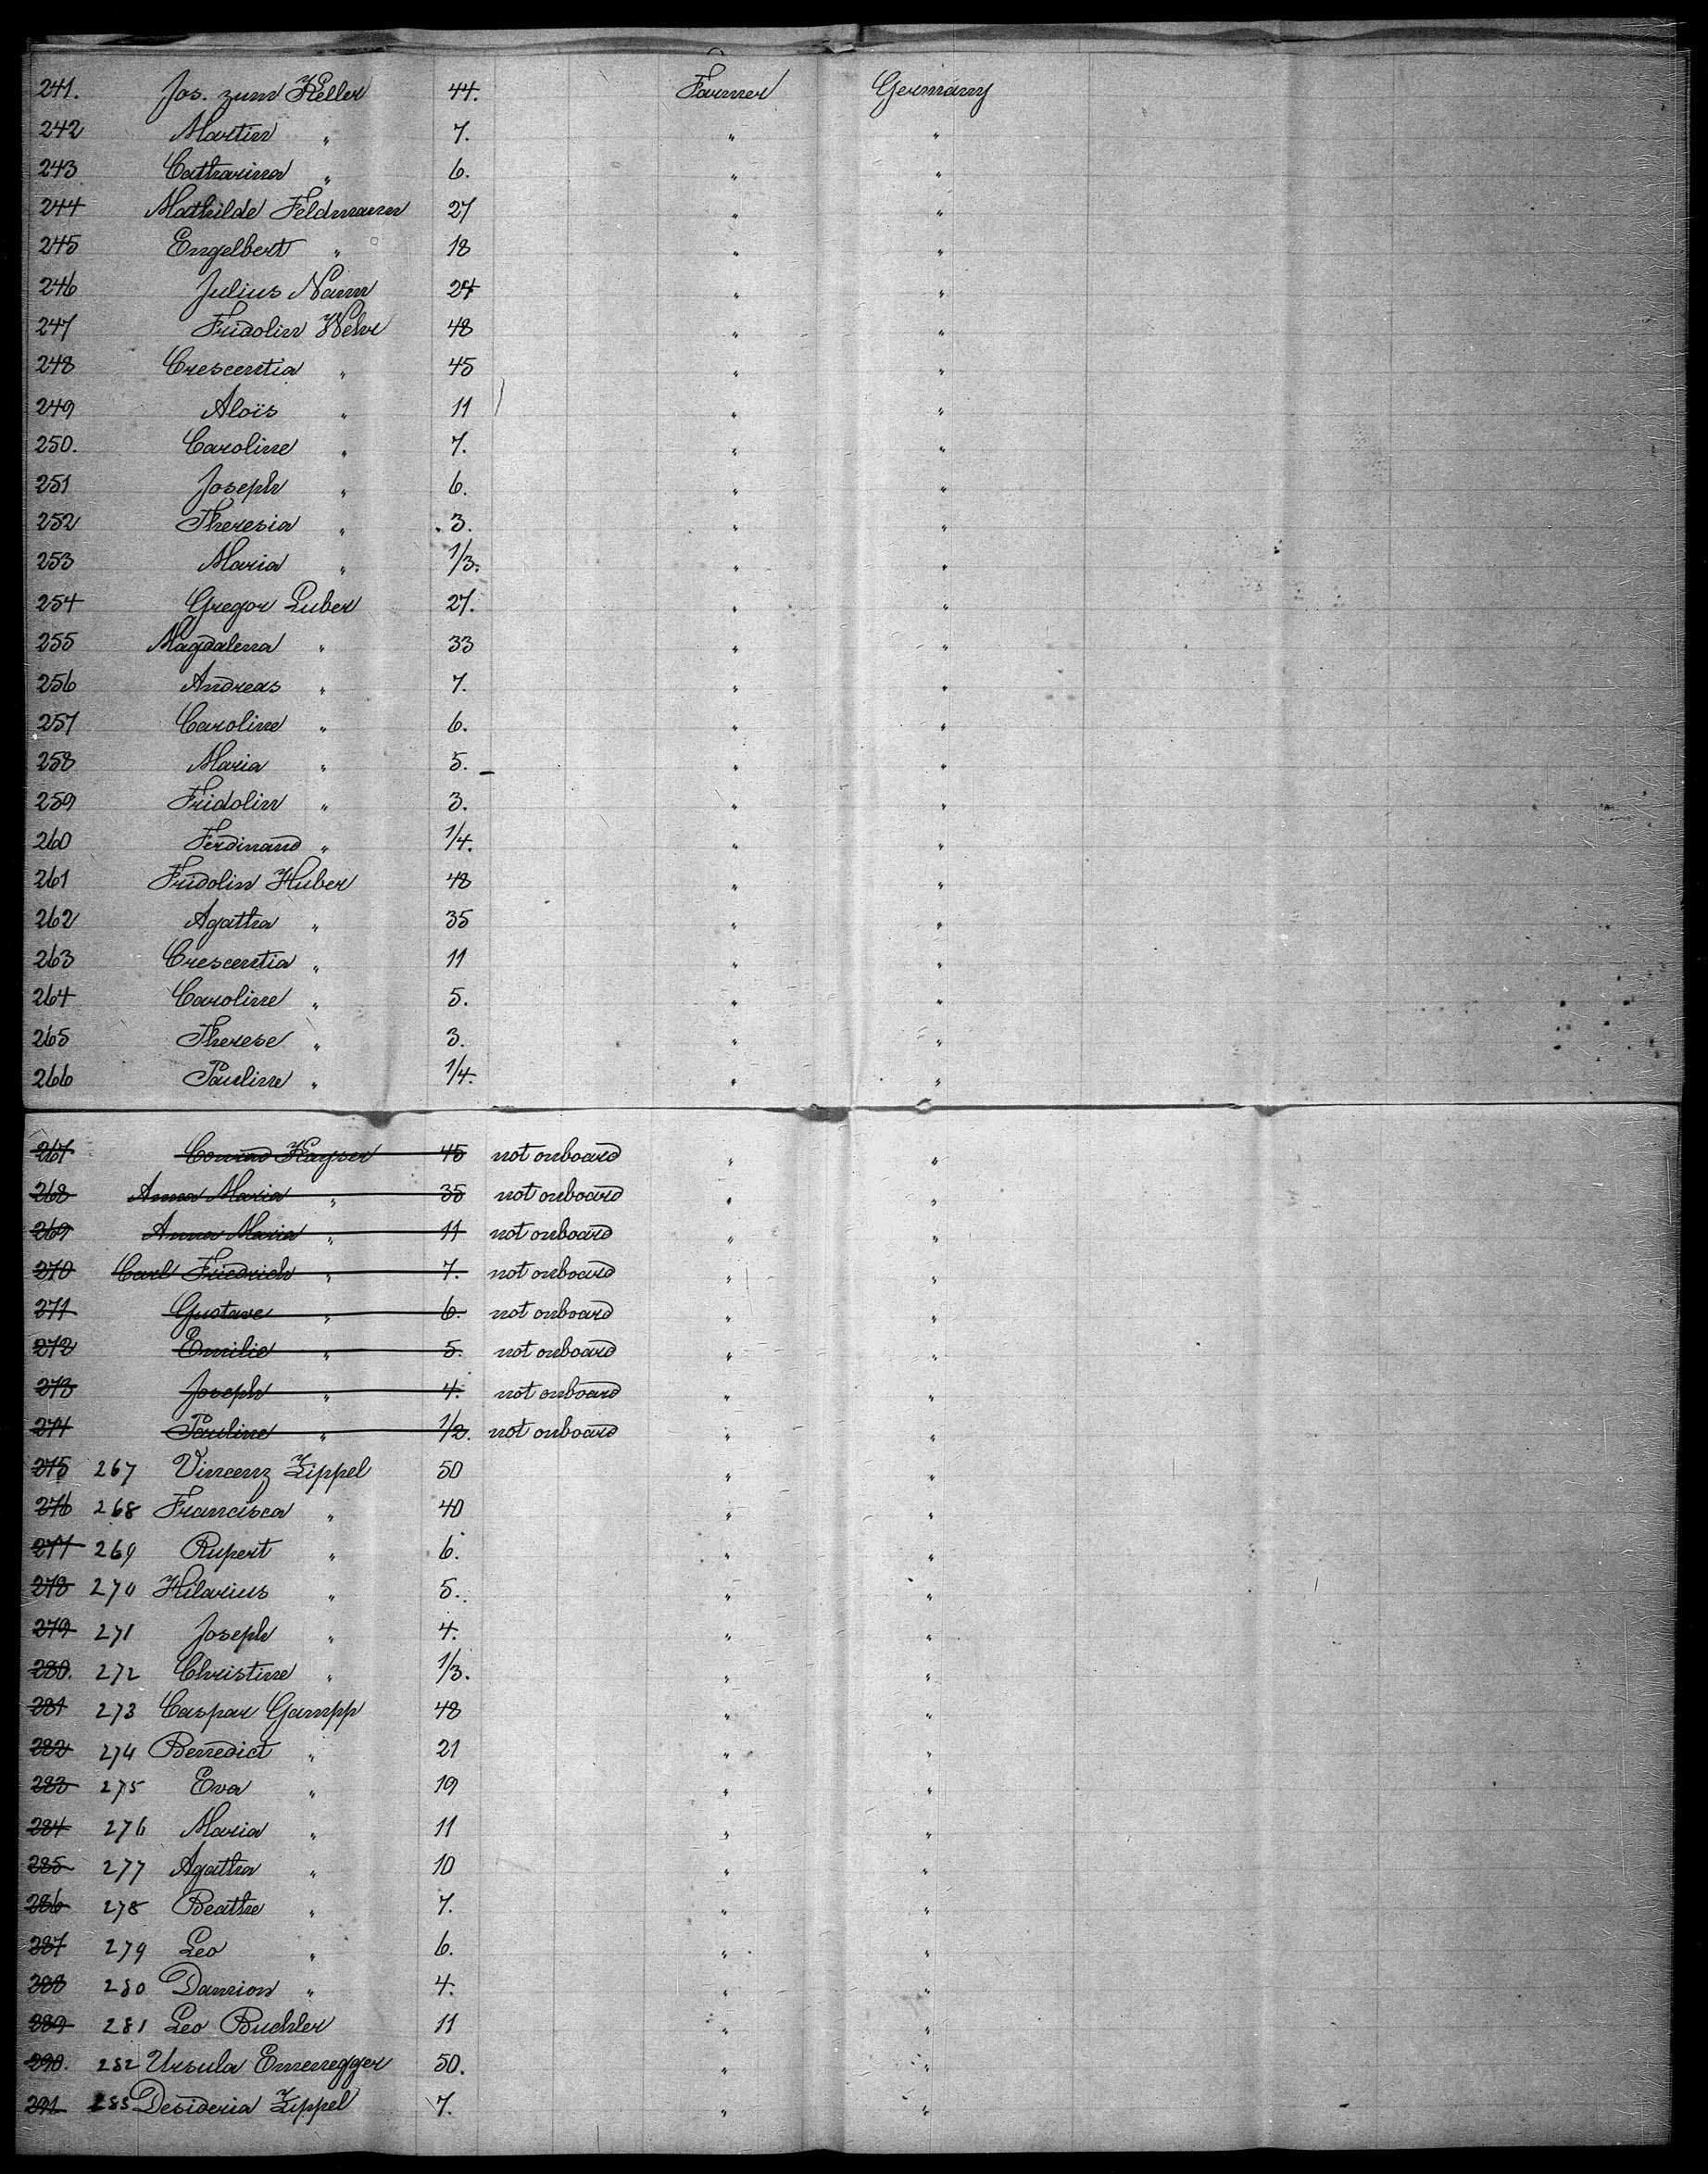 241. Jos. zum Keller 44. Farmer Germany
242 Martin " 7. " "
243 Catharina " 6. " "
244 Mathilde Feldmann 27 " "
245 Engelbert " 18 " "
246 Julius Nann 24 " "
247 Fridolin Wehr 48 " "
248 Crescentia " 45 " "
249 Aloïs " 11 " "
250. Caroline " 7. " "
251 Joseph " 6. " "
252 Theresia " 3. " "
253 Maria " 1/3. " "
254 Gregor Luber 27. " "
255 Magdalena " 33 " "
256 Andreas " 7. " "
257 Caroline " 6. " "
258 Maria " 5. " "
259 Fridolin " 3. " "
260 Ferdinand " 1/4. " "
261 Fridolin Huber 48 " "
262 Agatha " 35 " "
263 Crescentia " 11 " "
264 Caroline " 5. " "
265 Therese " 3. " "
266 Pauline " 1/4. " "
267 Conrad Kayser 45 not onboard " "
268 Anna Maria " 35 not onboard " "
269 Anna Maria " 11 not onboard " "
270 Carl Friedrich " 7. not onboard " "
271 Gustave " 6. not onboard " "
272 Emilie " 5. not onboard " "
273 Joseph " 4. not onboard " "
274 Pauline " 1/2. not onboard " "
275 267 Vincenz Zippel 50 " "
276 268 Francisca " 40 " "
277 269 Rupert " 6. " "
278 270 Hilarius " 5. " "
279 271 Joseph " 4. " "
280. 272 Christine " 1/3. " "
281 273 Caspar Gampp 48 " "
282 274 Benedict " 21 " "
283 275 Eva " 19 " "
284 276 Maria " 11 " "
285 277 Agatha " 10 " "
286 278 Beathe " 7. " "
287 279 Leo " 6. " "
288 280 Damion " 4. " "
289 281 Leo Buchler 11 " "
290. 282 Ursula Emmenegger 50. " "
291 283 Desideria Zippel 7. " "